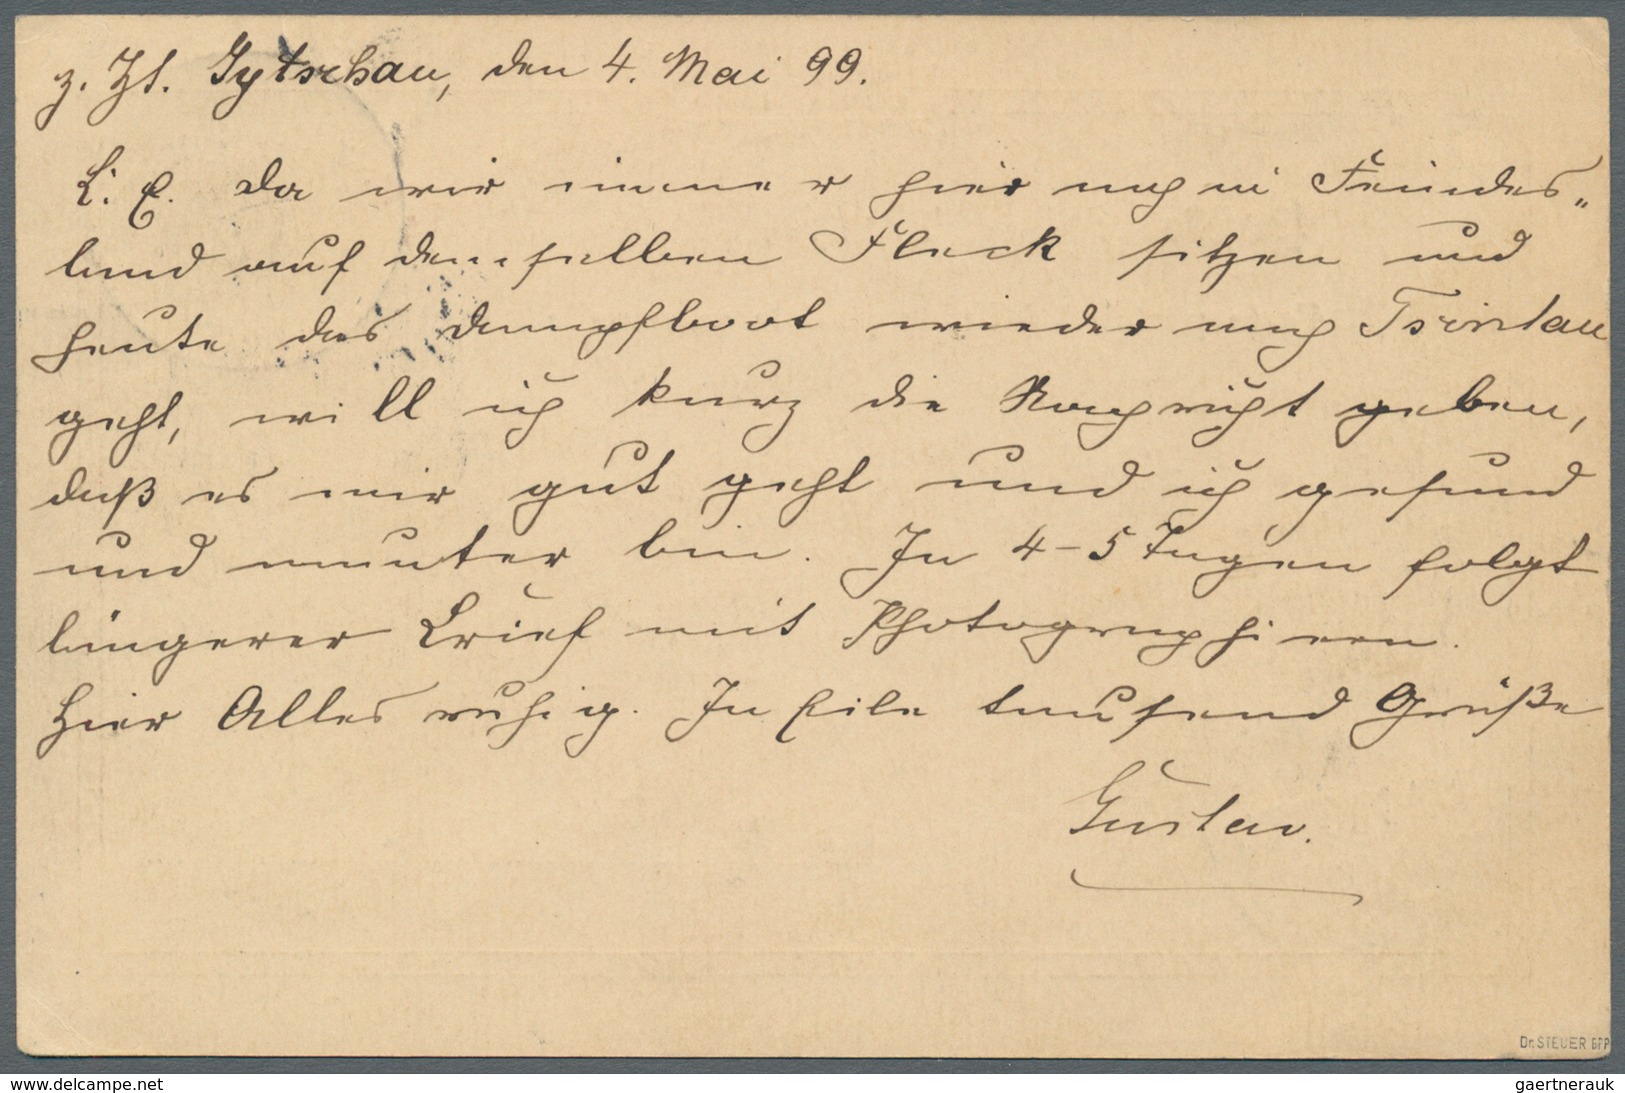 z. Zt. Gytschau, den 4. Mai 99.
L. E. Da wir immer hier noch in Feindes„
land auf demselben Fleck sitzen und
heute das Dampfboot wieder nach Tsintau
geht, will ich kurz die Nachricht geben,
daß es mir gut geht und ich gesund
und munter bin. In 4-5 Tagen folgt
längerer Brief mit Photographieen.
Hier Alles ruhig. In Eile tausend Grüße
Gustav.
Dr. STEUER BPP
www.delcampe.net
gaertnerauk